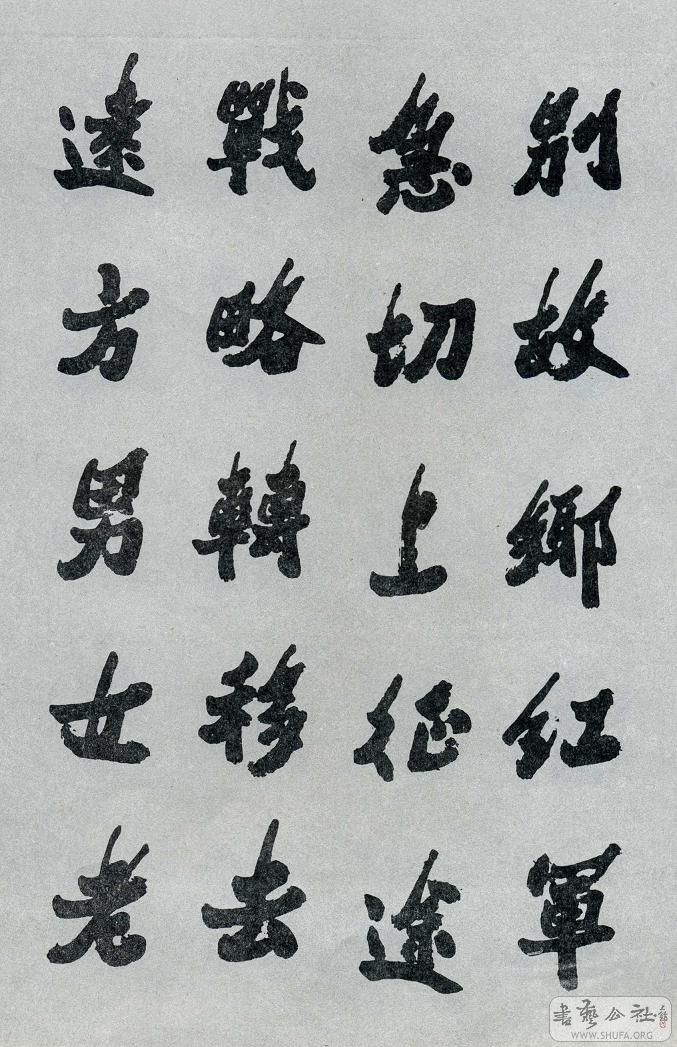 別故鄉紅軍
急切上征途
戰略轉移去
遠方男女老
書藝公社
WWW.SHUFA.ORG